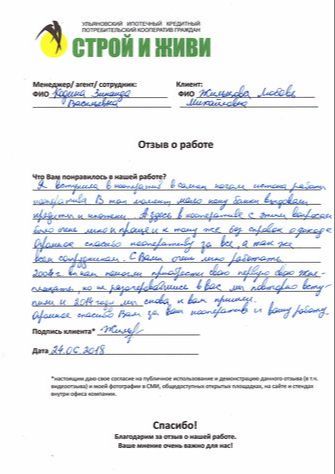 УЛЬЯНОВСКИЙ ИПОТЕЧНЫЙ КРЕДИТНЫЙ
ПОТРЕБИТЕЛЬСКИЙ КООПЕРАТИВ ГРАЖДАН
СТРОЙ И ЖИВИ
Менеджер/ агент/ сотрудник: Клиент:
ФИО Зинаида ФИО Жилькова Любовь
Васильевна Михайловна
Отзыв о работе
Что Вам понравилось в нашей работе?
Я вступила в кооператив в самом начале истока работы
кооператива. В тот момент мало кому банки выдавали
кредиты и ипотеки. А здесь в кооперативе с этим вопросом
было очень легко и проще и к тому же без справок о доходе
Огромное спасибо кооперативу за все, а так же
всем сотрудникам. С Вами очень легко работать.
2008г. вы нам помогли приобрести свою первую свою жил-
площадь, но не разочаровавшись в вас мы повторно всту-
пили и 2014 году мы снова к вам пришли.
Огромное спасибо Вам за ваш кооператив и вашу работу.
Подпись клиента*
Дата 24.05.2018
*настоящим даю свое согласие на публичное использование и демонстрацию данного отзыва (в т.ч.
видеоотзыва) и моей фотографии в СМИ, общедоступных открытых площадках, на сайте и стендах
внутри офиса компании.
Спасибо!
Благодарим за отзыв о нашей работе.
Ваше мнение очень важно для нас!